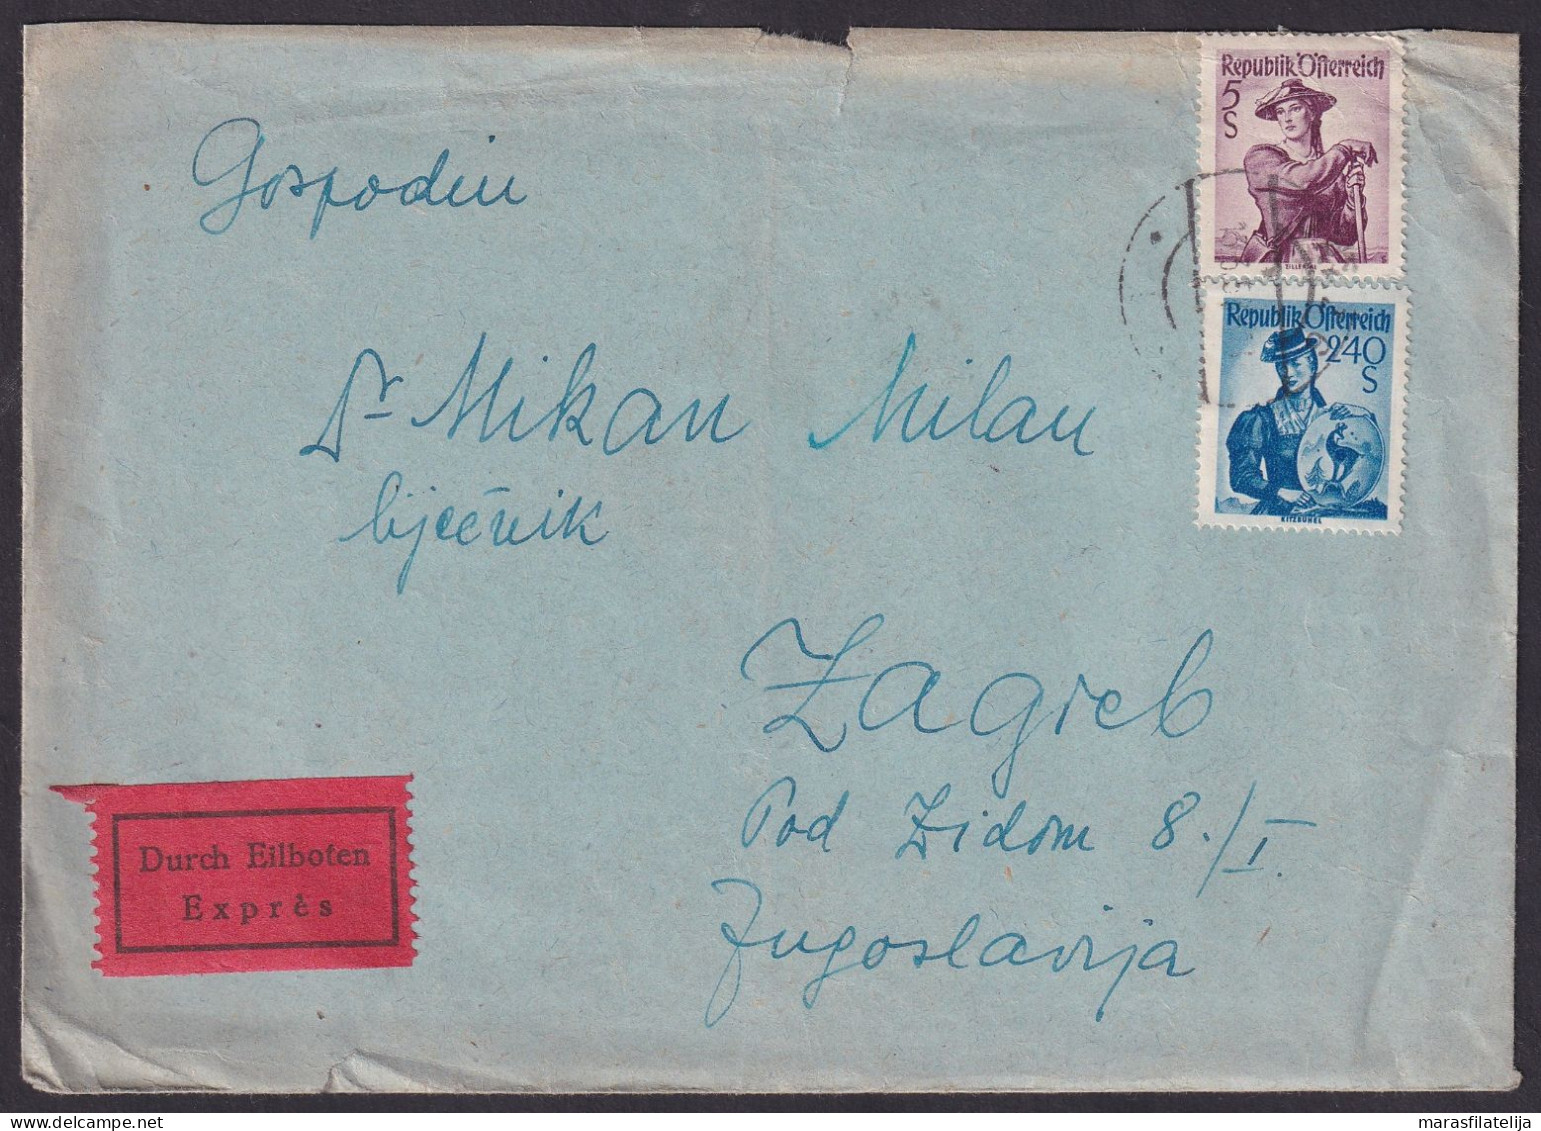 Republik Österreich
5
S
ZILLERTAL
Republik Österreich
2'40
S
KITZBÜHEL
Gospodin
Dr Mikan Milan
liječnik
Zagreb
Pod Zidom 8./I.
Jugoslavija
Durch Eilboten
Exprès
marasfilatelija